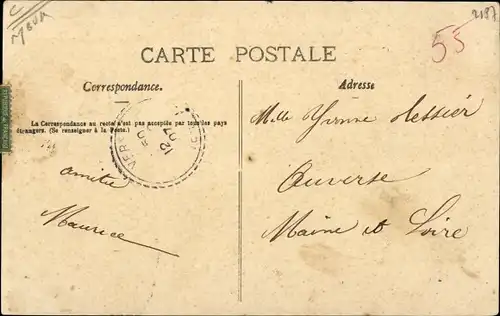 2197
55
CARTE POSTALE
Correspondance.
Adresse
La Correspondance au recto n'est pas acceptée par tous les pays
étrangers. (Se renseigner à la Poste.)
amitié
Maurice
Melle Yvonne Lessier
Auverse
Maine et Loire
VER
12
07